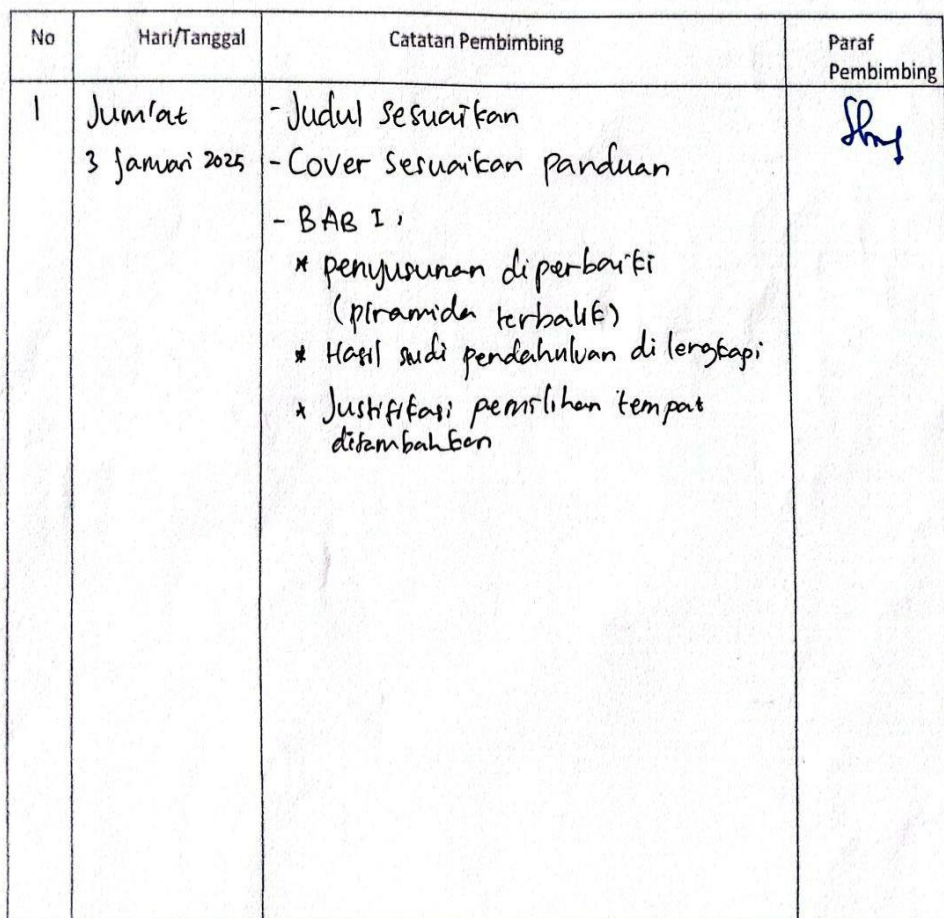 No Hari/Tanggal Catatan Pembimbing Paraf
Pembimbing
1 Jum'at - Judul sesuaikan
3 Januari 2025 - Cover sesuaikan panduan
- BAB I :
* penyusunan diperbaiki
(piramida terbalik)
* Hasil sudi pendahuluan di lengkapi
* Justifikasi pemilihan tempat
ditambahkan